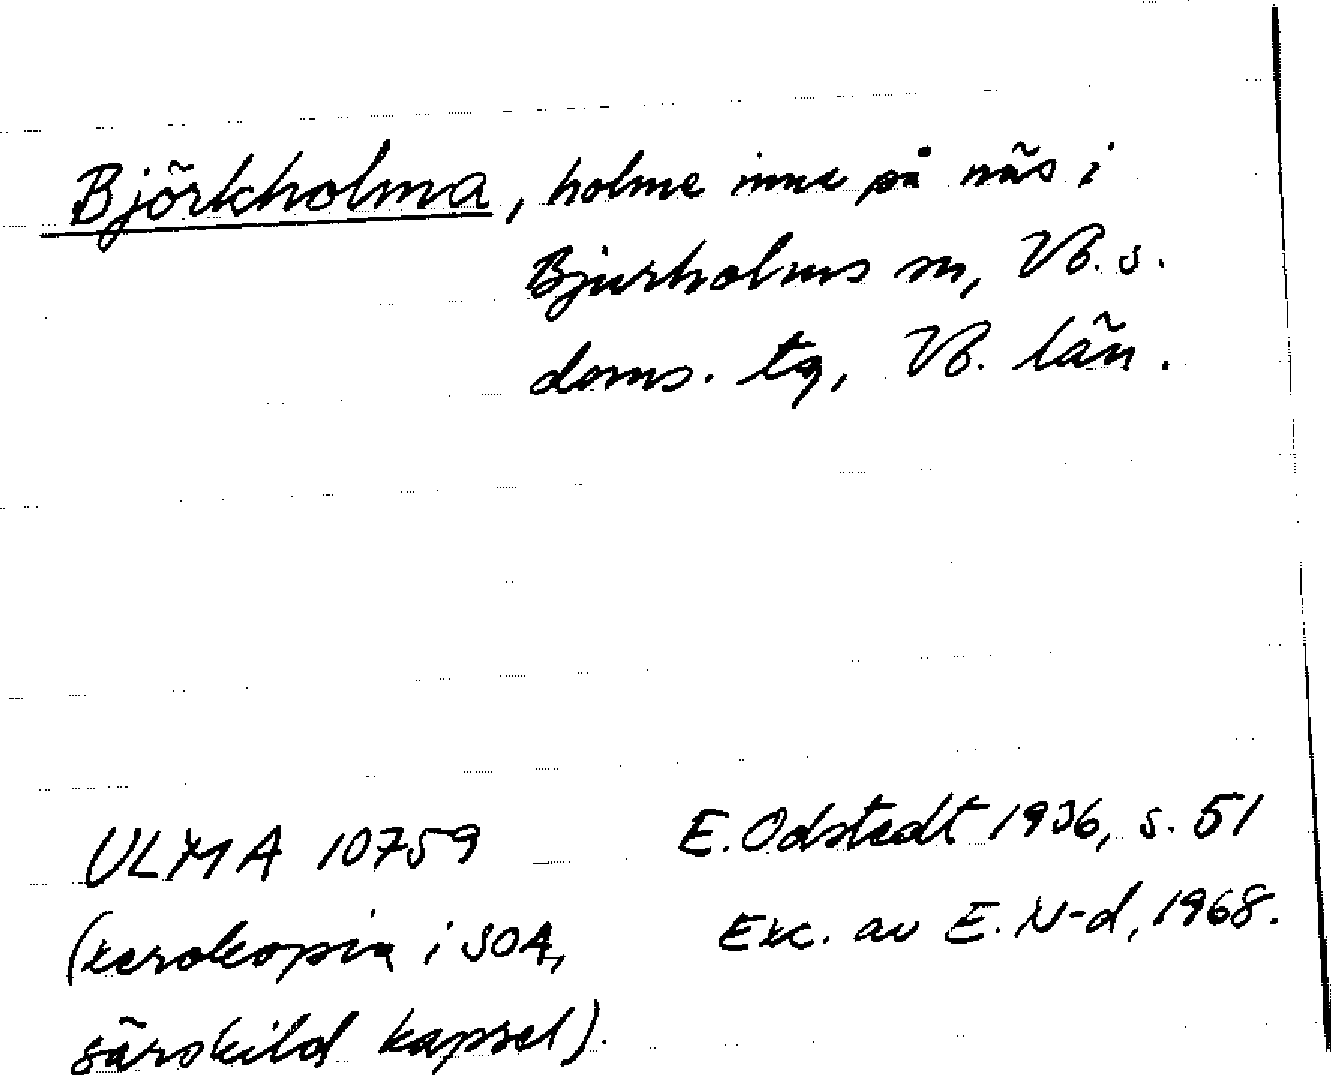 Björkholma, holme inne på näs i
Bjurholms sn, Vb. s.
doms. tg, Vb. län.
ULMA 10759
(xerokopia i SOA,
särskild kapsel).
E. Odstedt 1936, s. 51
Exc. av E. N-d, 1968.